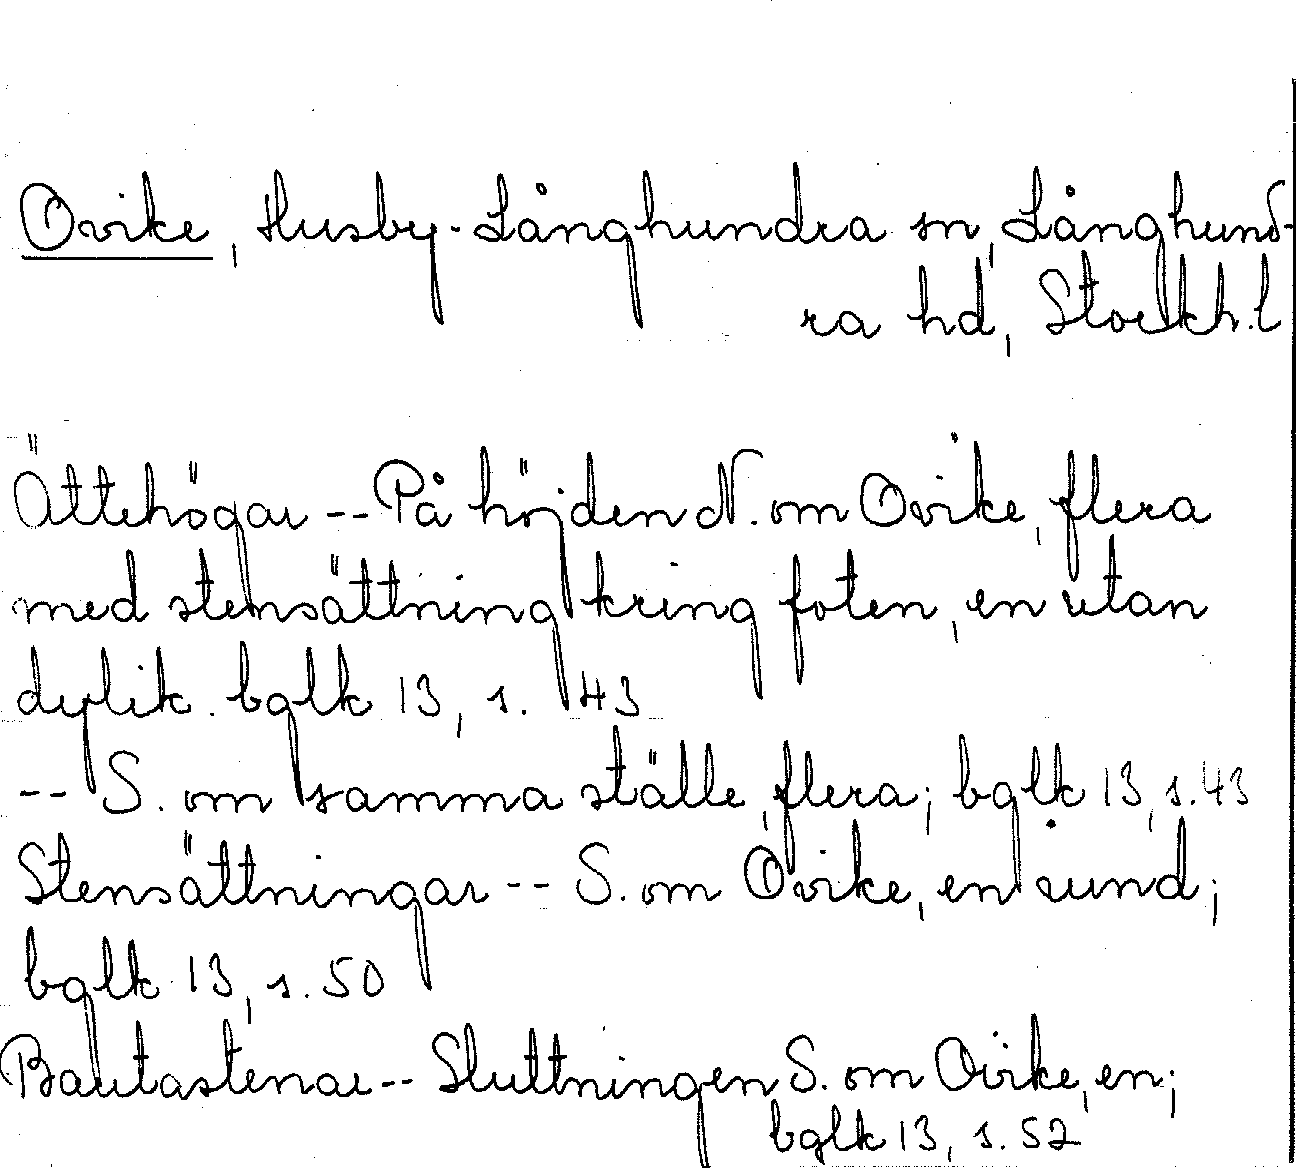 Ovike, Husby-Långhundra sn, Långhund-
ra hd, Stockh. l
Ättehögar -- På höjden N. om Ovike, flera
med stensättning kring foten, en utan
dylik. bglk 13, s. 43
-- S. om samma ställe, flera; bglk 13, s. 43
Stensättningar -- S. om Ovike, en rund;
bglk 13, s. 50
Bautastenar -- Sluttningen S. om Ovike, en;
bglk 13, s. 52